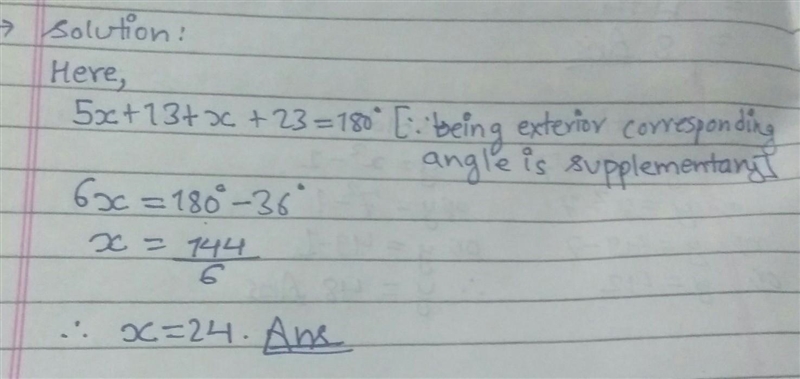 → Solution:
Here,
5x+13+x+23=180° [∵ being exterior corresponding
angle is supplementary]
6x=180°-36°
x = 144/6
∴ x=24. Ans